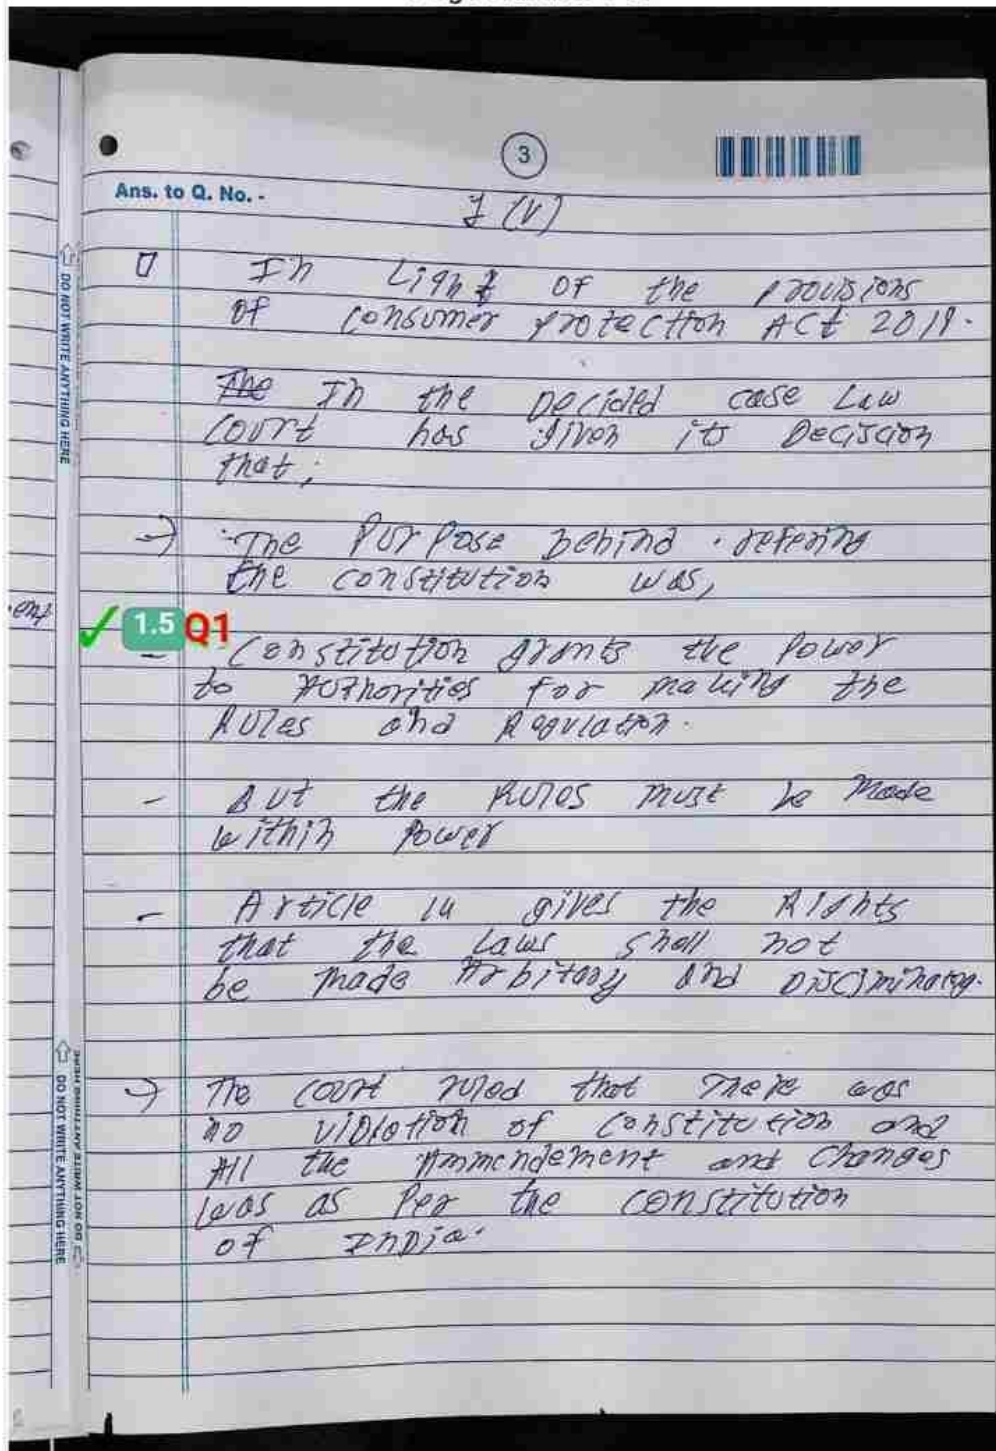 3
Ans. to Q. No. -
1 (V)
In Light of the provisions
of consumer protection Act 2019.
The In the Decided case Law
court has given its Deciscion
that;
→ The Purpose behind refering
the constitution was,
1.5 Q1
- Constitution grants the Power
to Authorities for making the
Rules and Regulation.
- But the Rules must be Made
within Power
- Article 14 gives the Rights
that the Laws shall not
be made Arbitary and
→ The court ruled that There was
no violation of constitution and
All the Ammendement and Changes
was as Per the constitution
of India.
DO NOT WRITE ANYTHING HERE
DO NOT WRITE ANYTHING HERE
DO NOT WRITE ANYTHING HERE